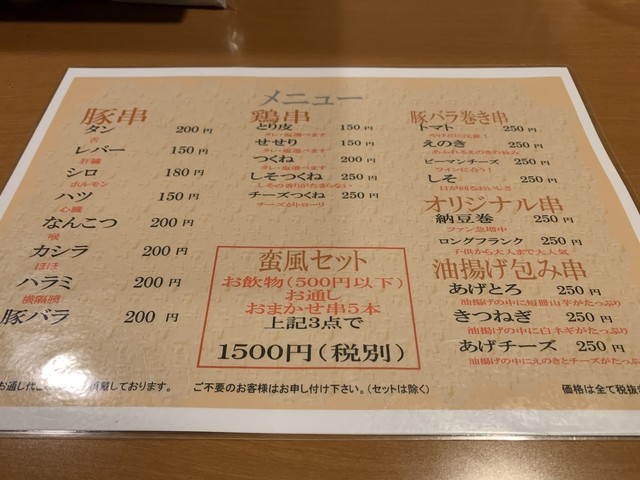 メニュー
豚串
タン 200円
舌
レバー 150円
肝臓
シロ 180円
ホルモン
ハツ 150円
心臓
なんこつ 200円
喉
カシラ 200円
ほほ
ハラミ 200円
横隔膜
豚バラ 200円
鶏串
とり皮 150円
タレ・塩選べます
せせり 150円
タレ・塩選べます
つくね 200円
タレ・塩選べます
しそつくね 250円
しその香りがたまらない
チーズつくね 250円
チーズがトローリ
蛮風セット
お飲物(500円以下)
お通し
おまかせ串5本
上記3点で
1500円(税別)
豚バラ巻き串
トマト 250円
えのき 250円
ピーマンチーズ 250円
ワインに合う!
しそ 250円
オリジナル串
納豆巻 250円
ファン急増中
ロングフランク 250円
子供から大人まで大人気
油揚げ包み串
あげとろ 250円
油揚げの中に短冊山芋がたっぷり
きつねぎ 250円
油揚げの中に白ネギがたっぷり
あげチーズ 250円
油揚げの中にえのきとチーズがたっぷ
お通し代 しております。 ご不要のお客様はお申し付け下さい。(セットは除く)
価格は全て税抜